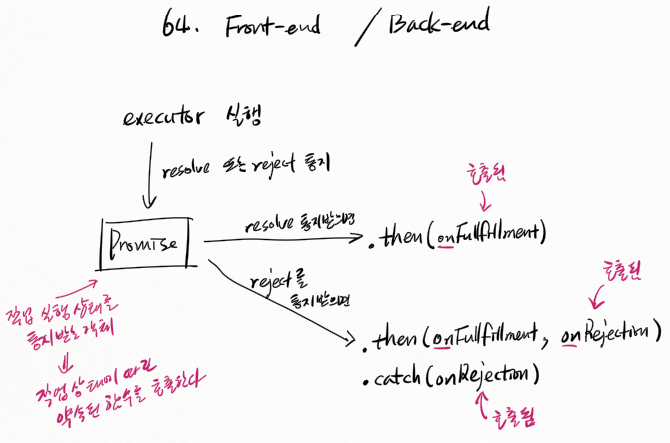 64. Front-end / Back-end
executor 실행
resolve 또는 reject 통지
호출됨
Promise
resolve 통지받으면
.then(onFullfillment)
reject를
통지받으면
호출됨
작업 실행 상태를
통지받는 객체
.then(onFullfillment, onRejection)
작업 상태에 따라
약속된 함수를 호출한다
.catch(onRejection)
호출됨